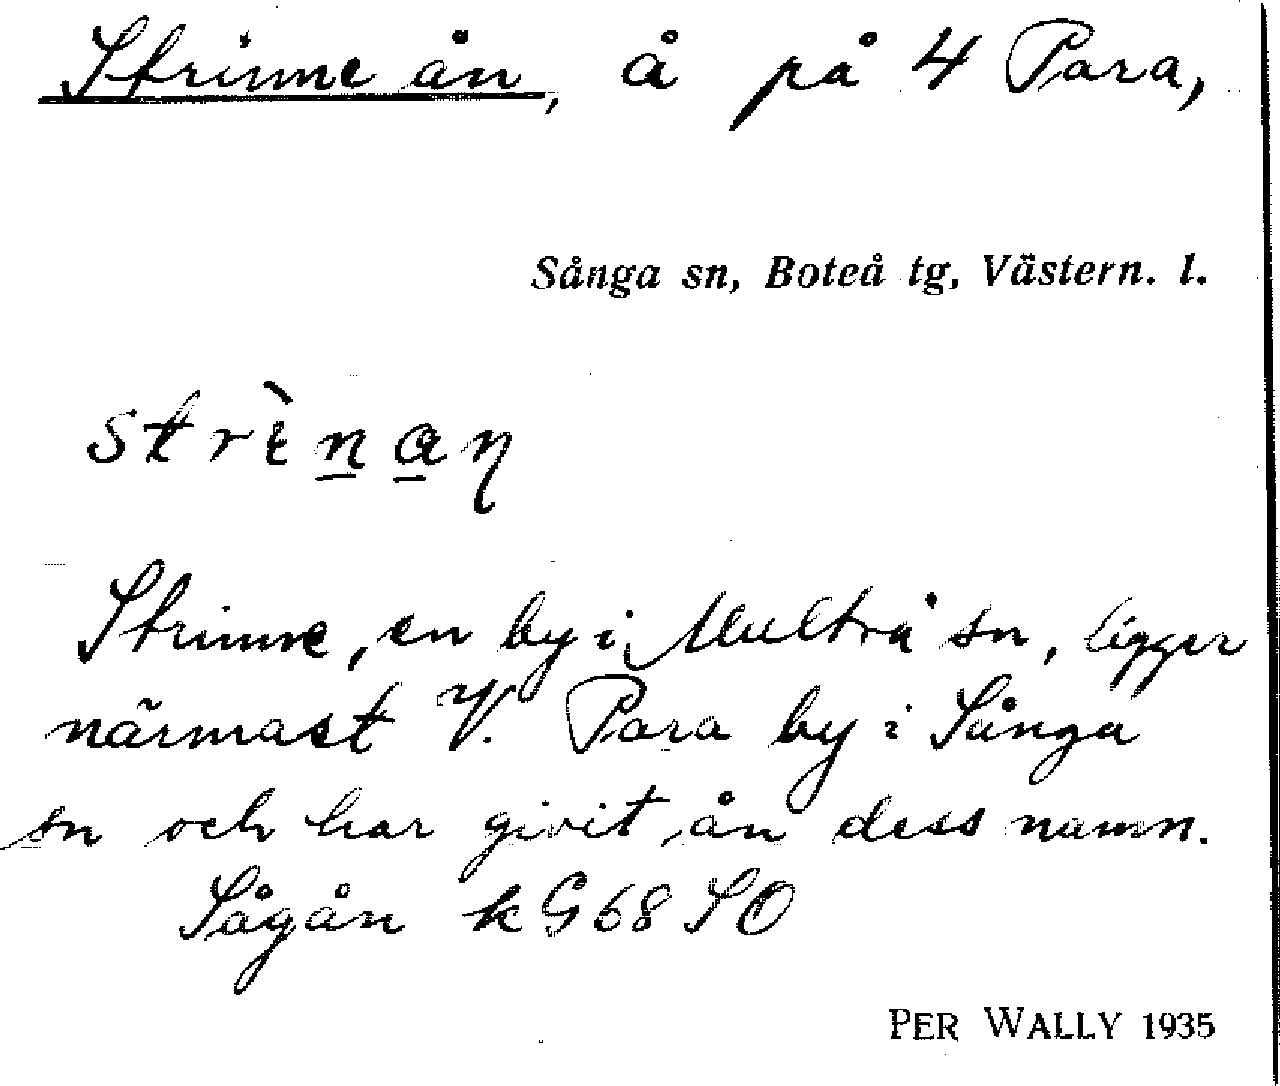 Strinne ån, å på 4 Para,
Sånga sn, Boteå tg, Västern. l.
strìnan
Strinne, en by i Multrå sn, ligger
närmast V. Para by i Sånga
sn och har givit ån dess namn.
Sågån k G 68 SO
PER WALLY 1935